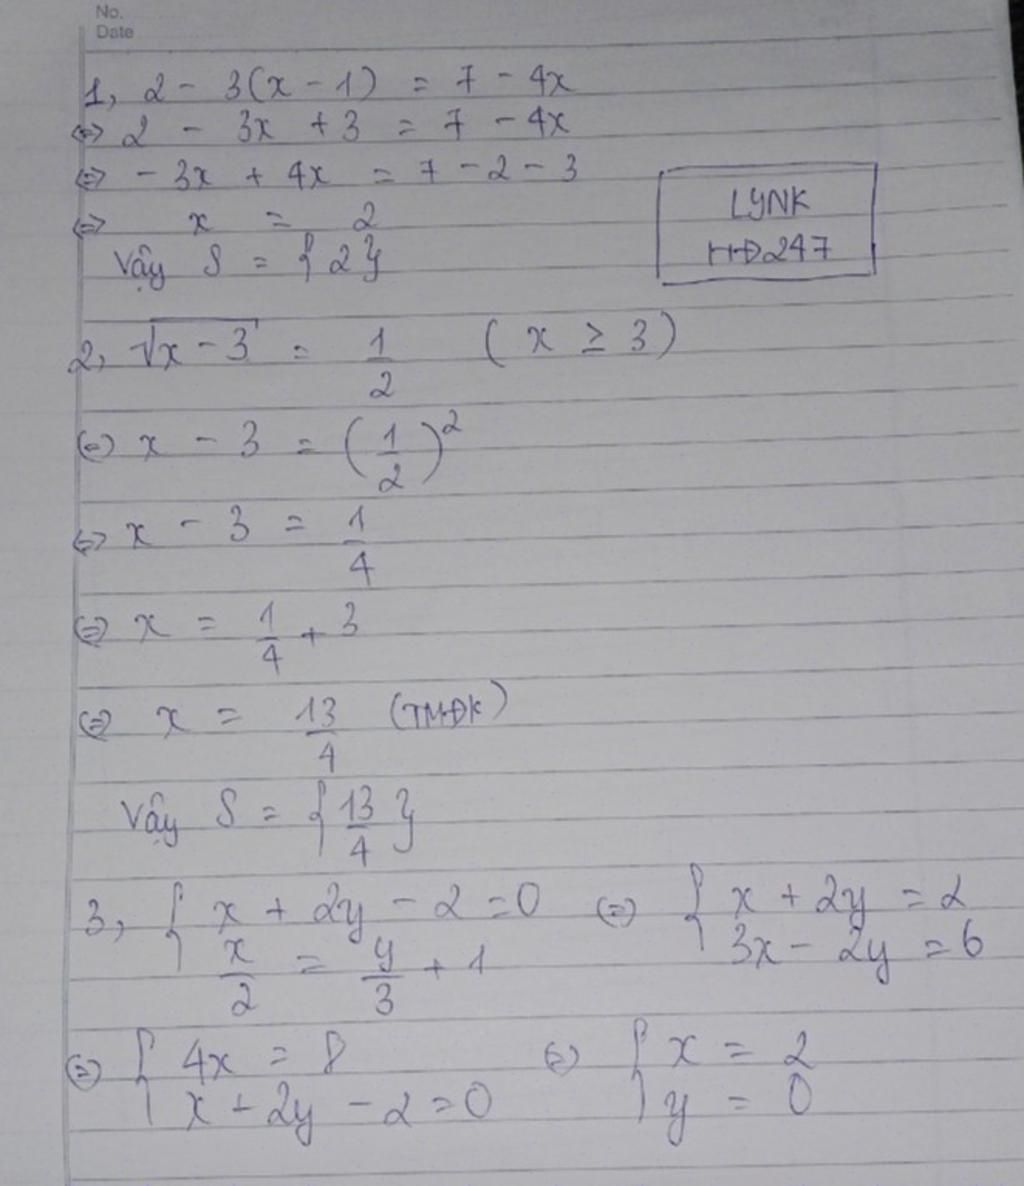 No.
Date
1, 2 - 3(x - 1) = 7 - 4x
⇔ 2 - 3x + 3 = 7 - 4x
⇔ - 3x + 4x = 7 - 2 - 3
⇔ x = 2
Vậy S = {2}
LYNK
HĐ247
2, √(x - 3) = 1/2 (x ≥ 3)
⇔ x - 3 = (1/2)²
⇔ x - 3 = 1/4
⇔ x = 1/4 + 3
⇔ x = 13/4 (TMĐK)
Vậy S = {13/4}
3, { x + 2y - 2 = 0 ⇔ { x + 2y = 2
x/2 = y/3 + 1 3x - 2y = 6
⇔ { 4x = 8 ⇔ { x = 2
x + 2y - 2 = 0 y = 0